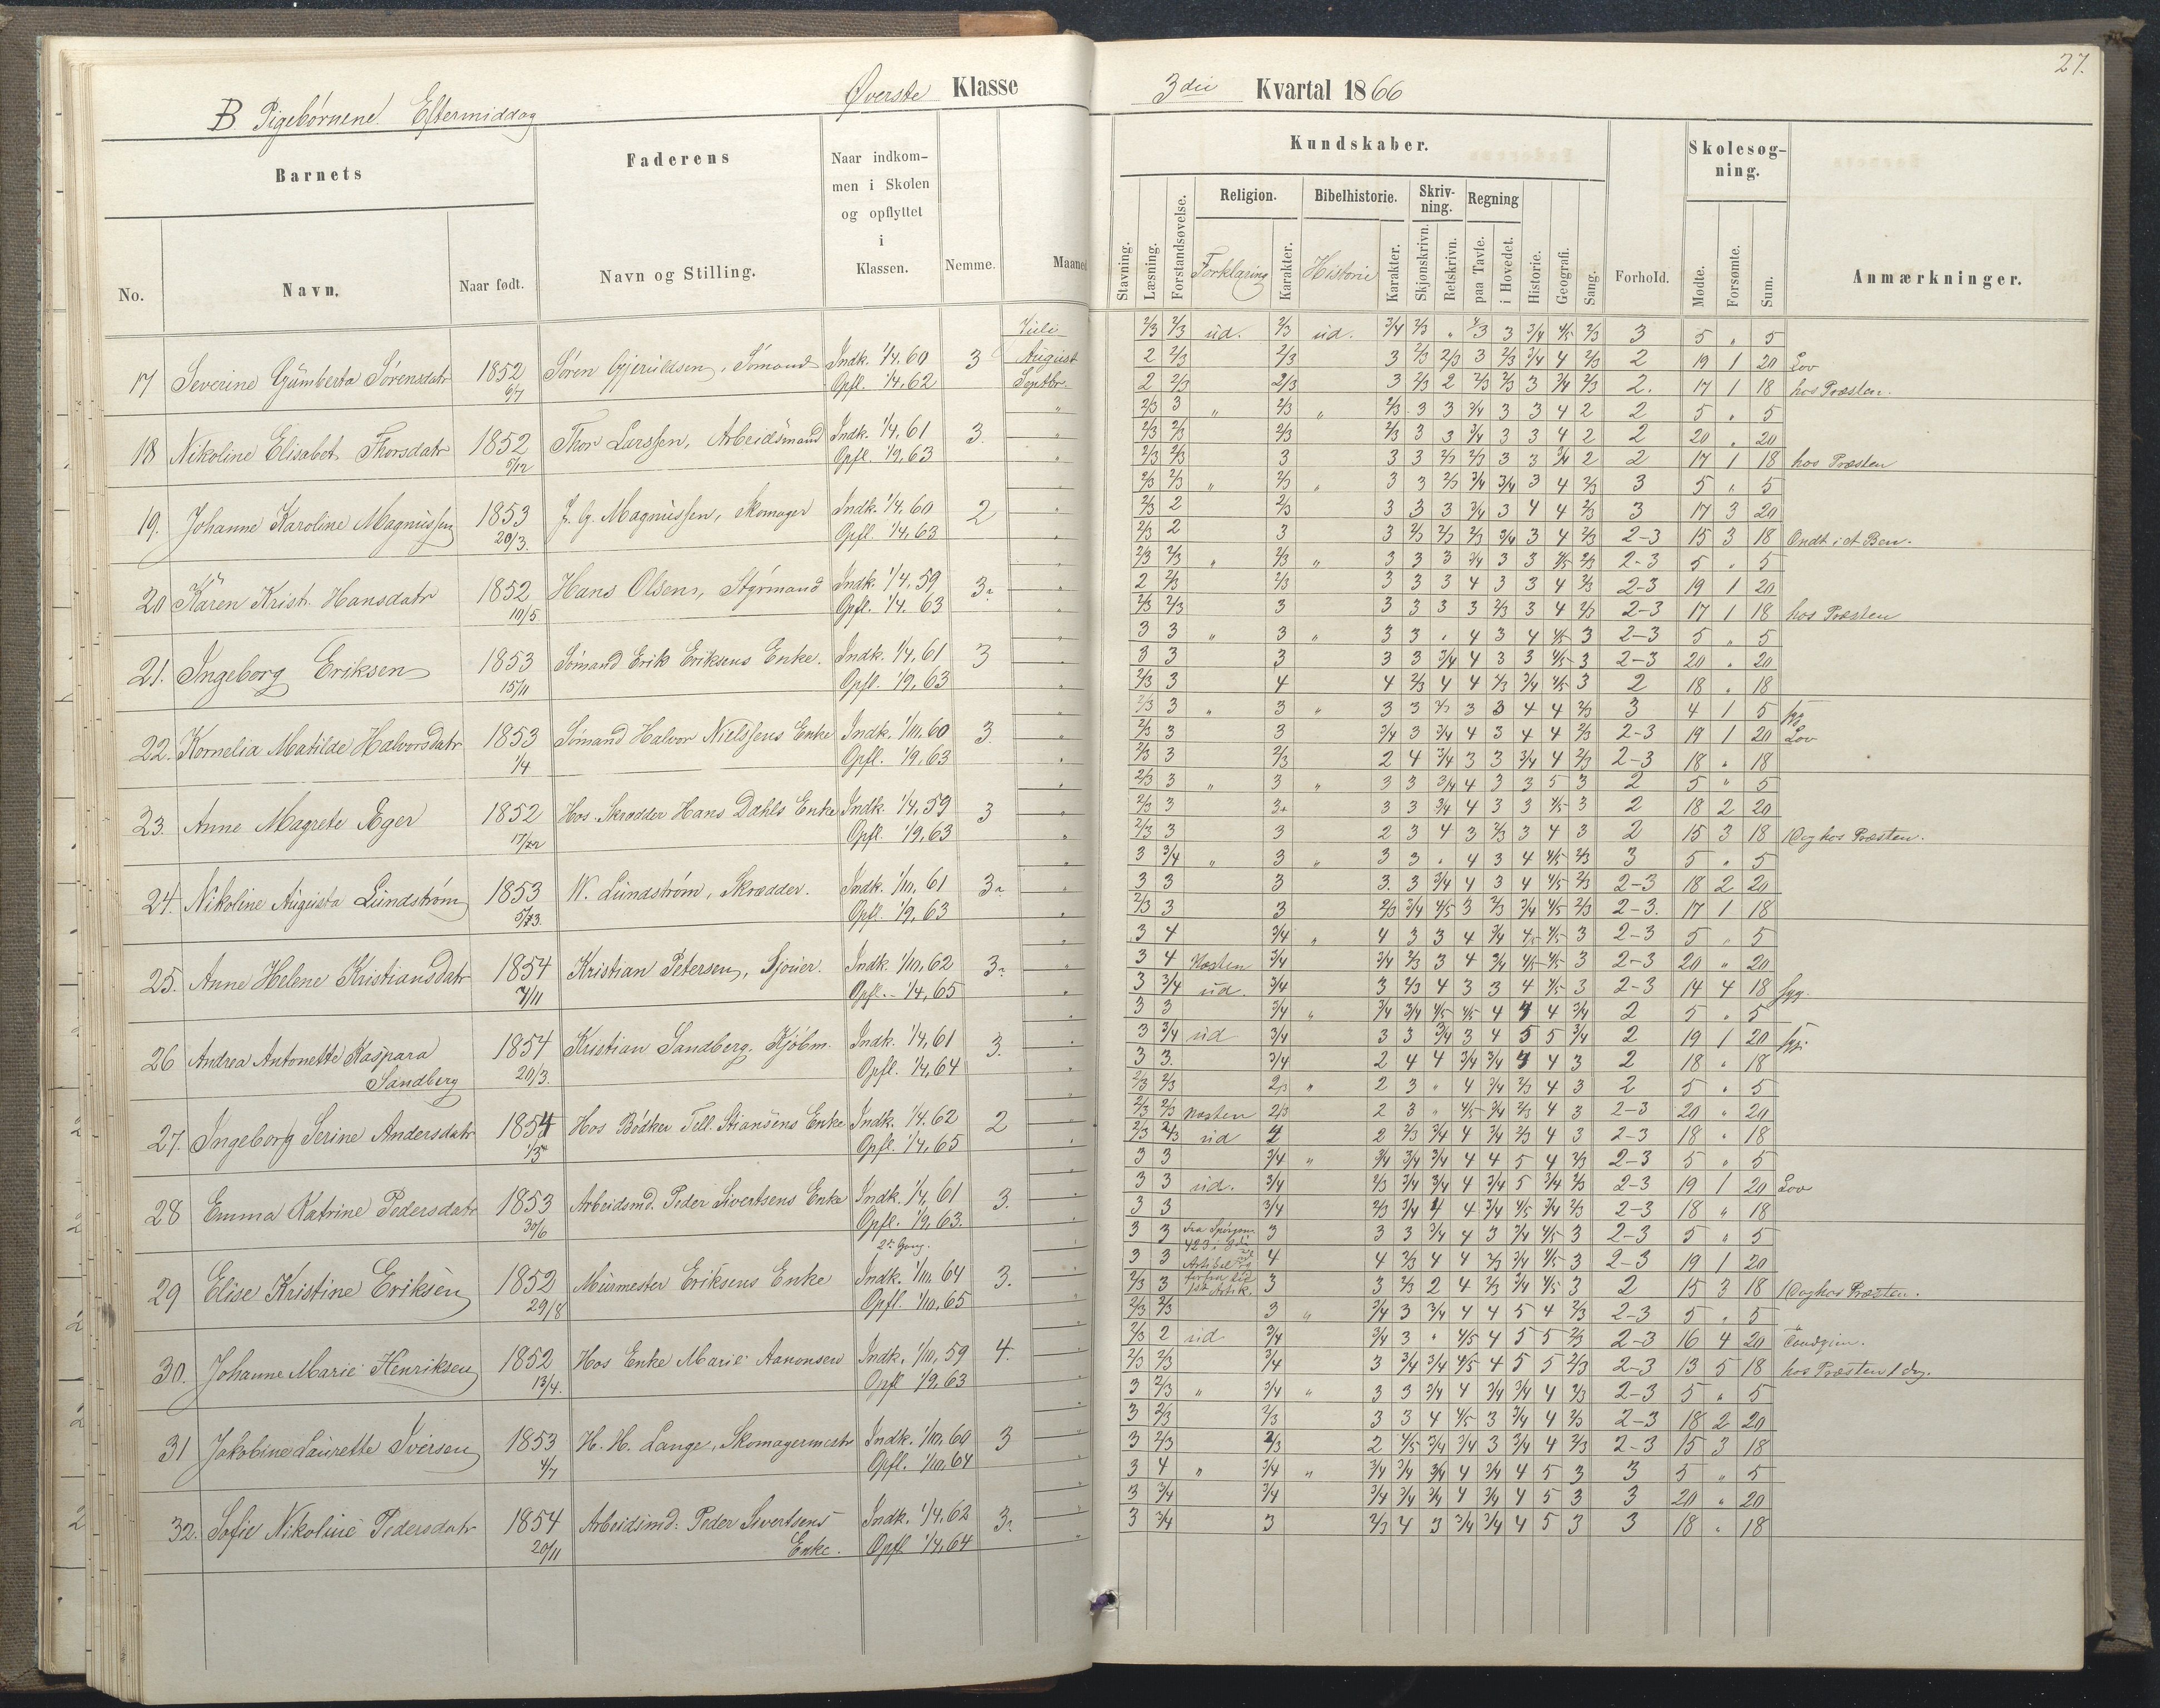 27.
B. Pigebørnene. Eftermiddag
Øverste Klasse
3die Kvartal 1866
Barnets
Faderens
Naar indkommen i Skolen og opflyttet i Klassen.
Nemme.
Maaned
Kundskaber.
Skolesøgning.
No.
Navn.
Naar født.
Navn og Stilling.
Stavning.
Læsning.
Forstandsøvelse.
Religion.
Forklaring
Karakter.
Bibelhistorie.
Historie
Karakter.
Skrivning.
Skjønskrivn.
Retskrivn.
Regning
paa Tavle.
i Hovedet.
Historie.
Geografi.
Sang.
Forhold.
Mødte.
Forsømte.
Sum.
Anmærkninger.
17 Severine Gumberta Sørensdatr 1852 6/7 Søren Gjeruldsen, Sømand Indk. 1/4, 60 Opfl. 1/4, 62 3 Juli August Septbr.
18 Nikoline Elisabet Thorsdatr 1852 5/12 Thor Larssen, Arbeidsmand Indk. 1/4, 61 Opfl. 1/9, 63 3.
19. Johanne Karoline Magnussen 1853 20/3. J. G. Magnussen, Skomager Indk. 1/4, 60 Opfl. 1/4, 63 2
20 Karen Krist. Hansdatr 1852 10/5 Hans Olsen, Styrmand Indk. 1/4, 59 Opfl. 1/4. 63 3
21. Ingeborg Eriksen 1853 15/11 Sømand Erik Eriksens Enke. Indk. 1/4, 61 Opfl. 1/9, 63 3
22. Kornelia Matilde Halvorsdatr 1853 1/4 Sømand Halvor Nielssens Enke Indk. 1/10. 60 Opfl. 1/9, 63 3
23. Anne Magrete Æger 1852 17/12 Hos Skrædder Hans Dahls Enke Indk. 1/4, 59 Opfl. 1/9, 63 3
24. Nikoline Augusta Lundstrøm 1853 W. Lundstrøm, Skrædder. Indk. 1/10, 61 Opfl. 1/9, 63 3
25. Anne Helene Kristiansdatr 1854 7/11 Kristian Petersen, Sjouer. Indk. 1/10, 62 Opfl. 1/4, 65 3
26 Andrea Antonette Kaspara Sandberg 1854 20/3. Kristian Sandberg. Kjøbm. Indk. 1/4, 61 Opfl. 1/4, 64 3.
27. Ingeborg Serine Andersdatr 1854 1/3 Hos Bødker Tell. Stiansens Enke Indk. 1/4. 62 Opfl. 1/4, 65 2
28 Emma Katrine Pedersdatr 1853 30/6 Arbeidsmd. Peder Sivertsens Enke Indk. 1/4, 61 Opfl. 1/9, 63. 3.
29 Elise Kristine Eriksen 1852 29/8 Murmester Eriksens Enke 2n Gang. Indk. 1/10. 64 Opfl. 1/10, 65 3.
30. Johanne Marie Henriksen 1852 13/4. Hos Enke Marie Aanonsen Indk. 1/10, 59 Opfl 1/9, 63 4.
31 Jakobine Laurette Iversen 1853 4/7 H. H. Lange, Skomagermestr Indk. 1/10, 60 Opfl. 1/10, 64 3
32. Sofie Nikoline Pedersdatr 1854 20/11 Arbeidsmd: Peder Sivertsens Enke. Indk. 1/4, 62 Opfl 1/4, 64 3.
2/3 2/3 ud. 2/3 ud. 3/4 2/3 " 3 3/4 4/5 2/3 3 5 " 5
2 2/3 2/3 3 2/3 2/3 3 2/3 3/4 4 2/3 2 19 1 20 Lov
2 2/3 2/3 3 2/3 2 2/3 2/3 3 3/4 2/3 2. 17 1 18 hos Præsten.
2/3 3 " 2/3 " 2/3 3 3 3/4 3 3 4 2 2 5 " 5
2/3 2/3 2/3 2/3 3 3 3/4 3 3 4 2 2 20 " 20
2/3 2/3 3 3 3 2/3 2/3 3 3 3/4 2 2 17 1 18 hos Præsten
2/3 2/3 " 2/3 " 3 3 2/3 3/4 3/4 3 4 2/3 3 5 " 5
2/3 2 2/3 3 3 3 3/4 3 4 4 2/3 3 17 3 20
2/3 2 3 3 2/3 2/3 2/3 3/4 3 4 2/3 2-3 15 3 18 Ondt i et Ben.
2/3 2/3 " 2/3 " 3 3 3 3/4 3 3 4/5 2/3 2-3 5 " 5
2 2/3 2/3 3 3 3 4 3 3 4 2/3 2-3 19 1 20
2/3 2/3 3 3 3 3 3 2/3 3 4 2/3 2-3 17 1 18 hos Præsten
3 3 " 3 " 3 3 " 4 3 4 4/5 3 2-3 5 " 5
3 3 3 3 3 3/4 4 3 3 4/5 3 2-3 20 " 20
2/3 3 4 4 2/3 4 4 2/3 3/4 4/5 3 2 18 " 18
2/3 3 " 3 " 3 3 2/3 3 3 4 4 2/3 3 4 1 5 syg
2/3 3 3 3/4 3 3/4 4 3 4 4 2/3 2-3 19 1 20 Lov
2/3 3 2/3 2 4 3/4 3 3 3/4 4 2/3 2-3 18 " 18
2/3 3 " 3 " 3 3 3/4 4 3 3 5 3 2 5 " 5
2/3 3 3+ 3 3 3/4 4 3 3 4/5 3 2 18 2 20
2/3 3 3 2 3 4 3 2/3 3 4 3 2 15 3 18 1 Dag hos Præsten.
3 3/4 " 3 " 3 3 " 4 3 4 4/5 2/3 3 5 " 5
3 3 3 3. 3 3/4 4 3 4 4/5 2/3 2-3 18 2 20
2/3 3 3 2/3 3/4 4/5 3 2/3 3/4 4/5 2/3 2-3. 17 1 18
3 4 3/4 " 4 3 3 4 3/4 4/5 4/5 3 2-3 5 " 5
3 4 Næsten 3/4 3/4 2/3 3 4 3/4 4/5 4/5 3 2-3 20 " 20
3 3/4 ud. 3/4 3 2/3 4 3 3 4 4/5 3 2-3 14 4 18 syg.
3 3 3/4 " 3/4 3/4 4/5 4/5 4 4 4 3/4 2 5 " 5
3 3/4 ud 3/4 3 3 3/4 3 4 5 5 3/4 2 19 1 20 syg.
3 3. 3/4 2 4 4 3/4 3/4 4 4 3 2 18 " 18
2/3 2/3 2/3 " 2 3 " 4 3/4 2/3 4 3 2 5 " 5
2/3 2/3 Næsten 2/3 2 3 " 4/5 3/4 2/3 4 3 2-3 20 " 20
2/3 2/3 ud 2 2 2/3 3/4 4 3/4 2/3 4 3 2-3 18 " 18
3 3 3/4 " 3/4 3/4 3/4 4 4 5 4 2/3 2-3 5 " 5
3 3 ud. 3/4 2/3 3/4 3/4 4 3/4 5 3/4 2/3 2-3 19 1 20 Lov
3 3 3/4 2/3 3/4 4 4 3/4 4/5 3/4 2/3 2-3 18 " 18
3 3 Fra Spørgsm. 423 i 3die 3 3 3 3/4 4 3 3/4 4/5 3 2-3 5 " 5
3 3 Artikel 4 4 2/3 4 4 2/3 3/4 4/5 3 2-3 19 1 20
2/3 3 Artik. 3 3 2/3 2 4 2/3 3/4 4/5 3 2 15 3 18 1 Dag hos Præsten.
2/3 2/3 3 " 3/4 3 3/4 4 4 5 4 2/3 2-3 5 " 5
2/3 2 ud 3/4 3/4 3 " 4/5 4 5 5 2/3 2-3 16 4 20
2/3 2/3 3/4 3 3/4 3/4 4/5 4 5 5 2/3 2-3 13 5 18 hos Præsten 1 dag.
3 2/3 " 3/4 " 3 3 3/4 4 3/4 3/4 4 2/3 2-3 5 " 5
3 2/3 2/3 3 3 4 4/5 3 3/4 4 2/3 2-3 18 2 20
3 2/3 2/3 2 4/5 3/4 3/4 3 3/4 4 2/3 2-3 15 3 18
3 4 " 3/4 " 3/4 3/4 3/4 4 3/4 4 5 3 3 5 " 5
3 3/4 3/4 3/4 3/4 3/4 4 3/4 4 5 3 3 20 " 20
3 3/4 3 2/3 4 3 3/4 3/4 4 5 3 3 18 " 18